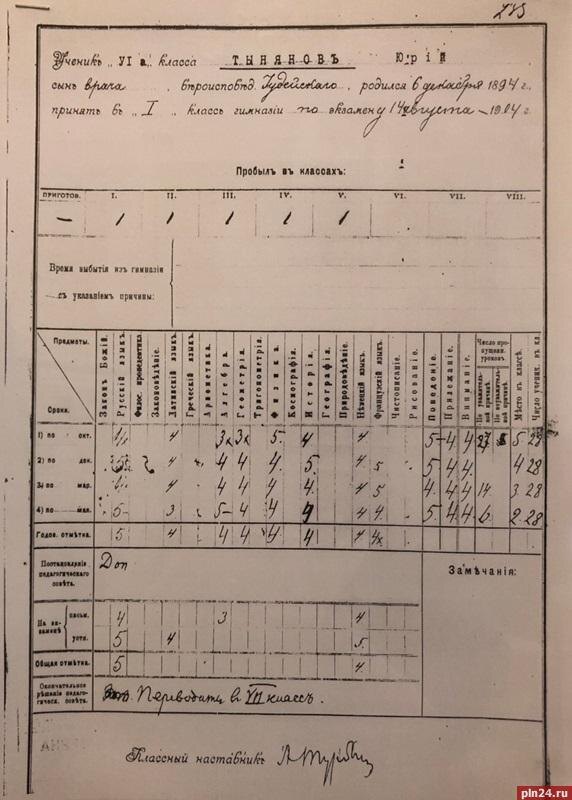 Ученикъ „VI а„ класса ТЫНЯНОВЪ Юрій
сынъ врача, вѣроисповѣд. Іудейскаго, родился 6 декабря 1894 г.,
принятъ въ „I„ классъ гимназіи по экзамену 14 августа – 1904 г.
Пробылъ въ классахъ:
ПРИГОТОВ. I. II. III. IV. V. VI. VII. VIII.
— / / / / /
Время выбытія изъ гимназіи
съ указаніемъ причины:
Предметы. Сроки.
Законъ Божій.
Русскій языкъ.
Филос. пропедевтика.
Законовѣдѣніе.
Латинскій языкъ.
Греческій языкъ.
Ариѳметика.
Алгебра.
Геометрія.
Тригонометрія.
Физика.
Космографія.
Исторія.
Географія.
Природовѣдѣніе.
Нѣмецкій язык.
Французскій язык.
Чистописаніе.
Рисованіе.
Поведеніе.
Прилежаніе.
Вниманіе.
Число пропущенн. уроковъ.
По уважительной причинѣ.
По неуважительной причинѣ.
Мѣсто въ классѣ.
Число ученик. въ кл.
1) по окт. 4 3 3 5. 4 4 5- 4 4 5 28
2) по дек. 4 4 4 4. 5. 4 5 5 4 4. 4 28
3) по мар. 4 4 4 4 4. 4 5 4. 4 4 14. 3 28
4) по мая. 5- 3 5- 4 4 4 4 4. 5 4 4. 6. 2 28
Годов. отмѣтка. 5 4 4 4 4 4 4 4
Постановленіе педагогическаго совѣта. Доп
Замѣчанія:
На экзаменѣ письм. 4 3 4
устн. 5 4 5.
Общая отмѣтка. 5 4.
Окончательное рѣшеніе педагогическ. совѣта. Переводить въ VII классъ.
Классный наставникъ
pln24.ru